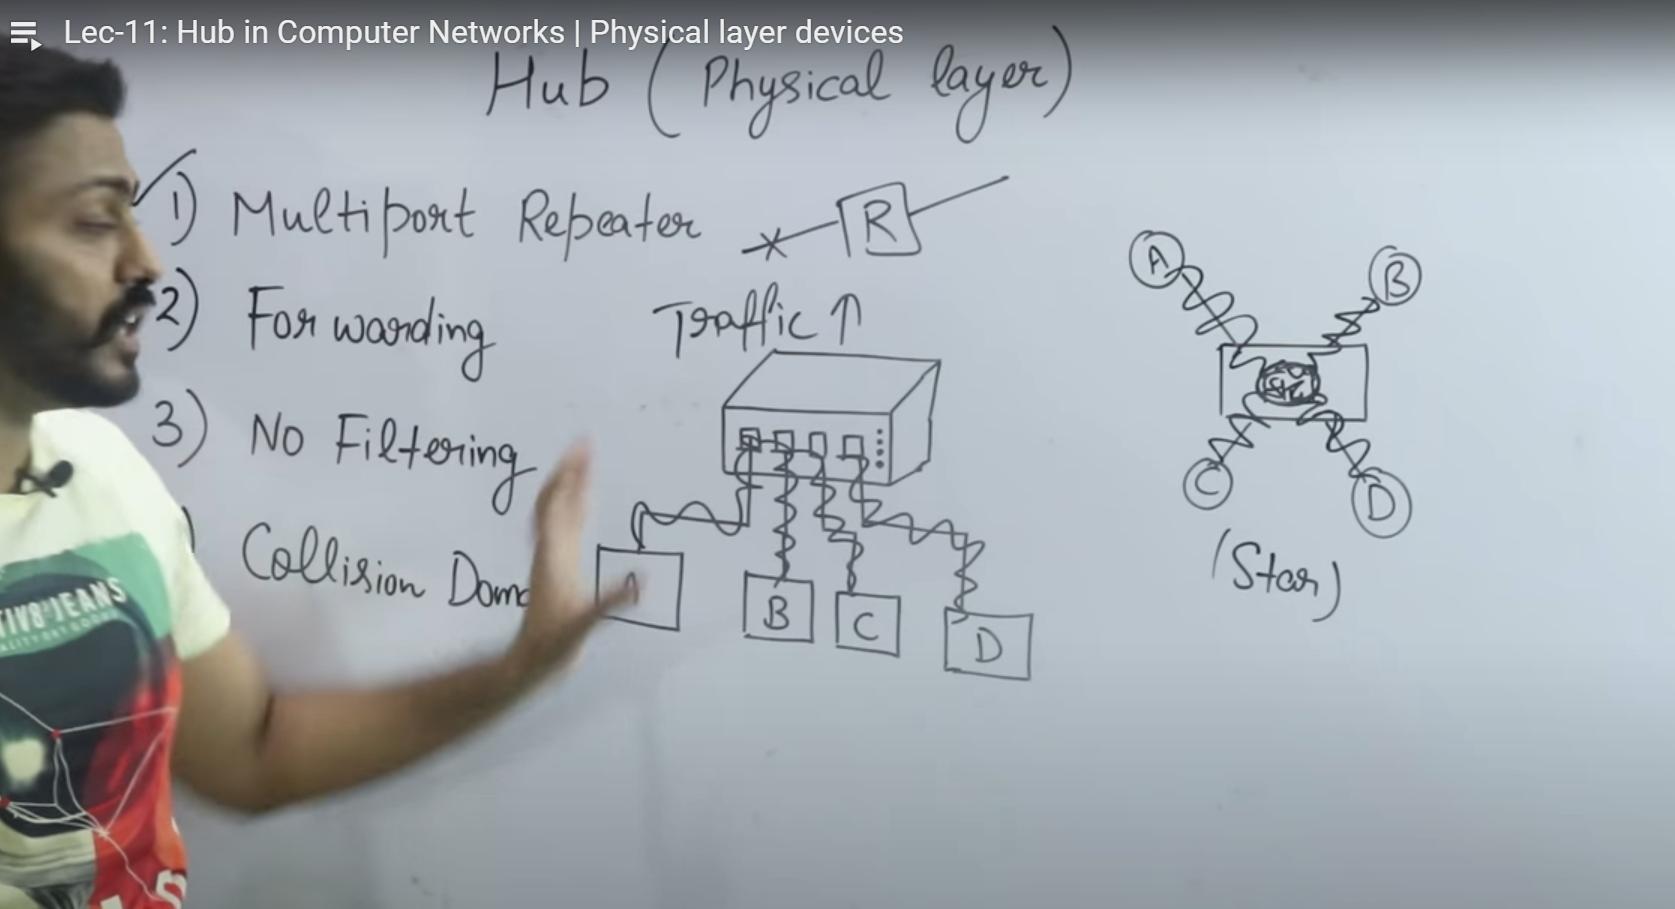 Lec-11: Hub in Computer Networks | Physical layer devices
Hub (Physical layer)
1) Multiport Repeater
R
2) Forwarding
Traffic ↑
3) No Filtering
Collision
A
B
C
D
A
B
C
D
(Star)
JEANS